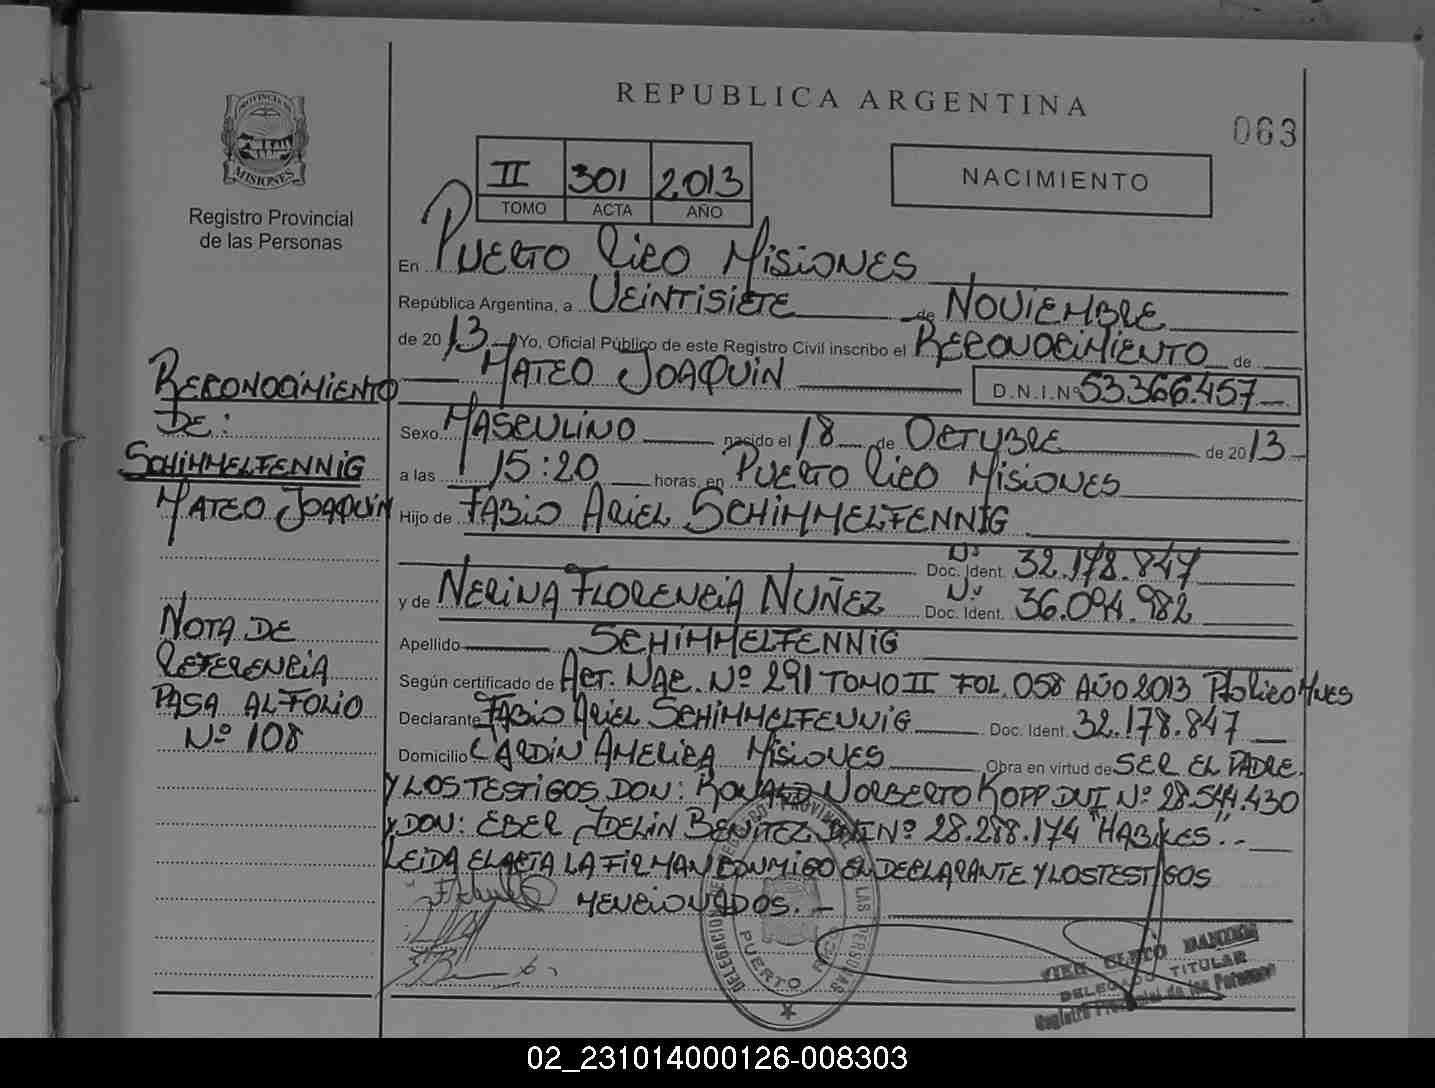 REPUBLICA ARGENTINA
063
MISIONES
Registro Provincial
de las Personas
II 301 2013
TOMO ACTA AÑO
NACIMIENTO
En PUERTO RICO MISIONES
República Argentina, a VEINTISIETE de NOVIEMBRE
de 2013 Yo, Oficial Público de este Registro Civil inscribo el RECONOCIMIENTO de
MATEO JOAQUIN D.N.I.Nº 53.366.457
Sexo MASCULINO nacido el 18 de OCTUBRE de 2013
a las 15:20 horas, en PUERTO RICO MISIONES
Hijo de FABIO ARIEL SCHIMMELFENNIG
Doc. Ident. Nº 32.178.847
y de NERINA FLORENCIA NUÑEZ Doc. Ident. Nº 36.094.982
Apellido SCHIMMELFENNIG
Según certificado de ACT. NAC. Nº 291 TOMO II FOL. 058 AÑO 2013 PtoRico Mnes
Declarante FABIO ARIEL SCHIMMELFENNIG Doc. Ident. 32.178.847
Domicilio JARDIN AMERICA MISIONES Obra en virtud de SER EL PADRE.
Y LOS TESTIGOS DON: RONALD NORBERTO KOPP DNI Nº 28.544.430
Y DON: EBER ADELIN BENITEZ DNI Nº 28.288.174 "HABILES".-
LEIDA EL ACTA LA FIRMAN CONMIGO EL DECLARANTE Y LOS TESTIGOS
MENCIONADOS.-
RECONOCIMIENTO
DE:
SCHIMMELFENNIG
MATEO JOAQUIN
NOTA DE
REFERENCIA
PASA AL FOLIO
Nº 108
PUERTO RICO
TITULAR
02_231014000126-008303